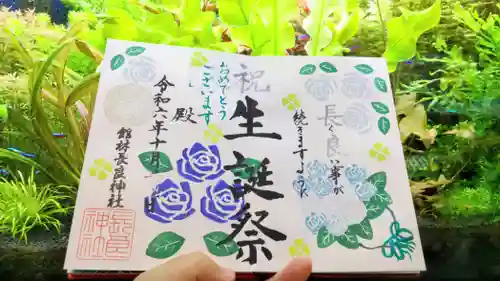 祝
生誕祭
長く良い事が
続きますように
おめでとう
ございます
殿
令和六年十月
日
館林長良神社
長良
神社